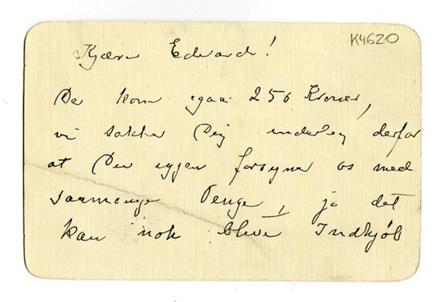 K4620
Kjære Edvard!
Der kom igaar 250 Kroner,
vi takker Dig inderlig derfor
at Du igjen forsyner os med
saamange Penge, ja det
kan nok blive Indkjøb